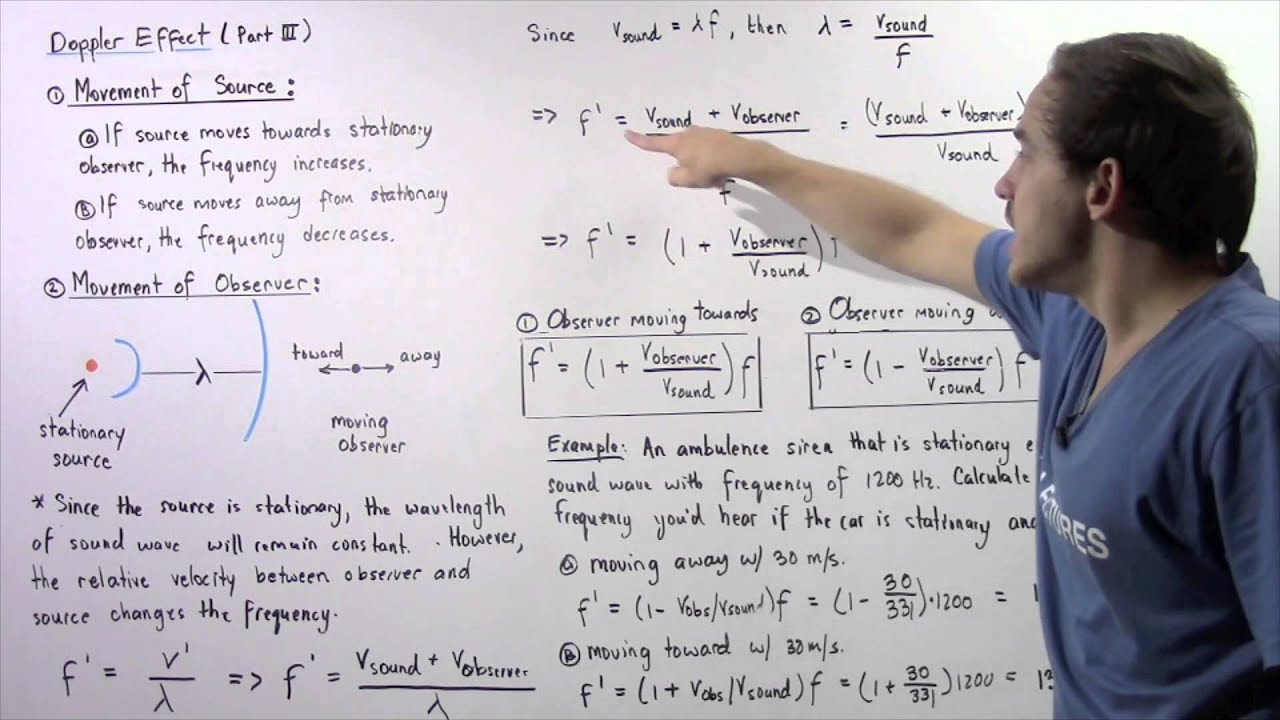 Doppler Effect (Part III)
① Movement of Source:
ⓐ If source moves towards stationary
observer, the frequency increases.
Ⓑ If source moves away from stationary
observer, the frequency decreases.
② Movement of Observer:
toward away
λ
stationary
source
moving
observer
* Since the source is stationary, the wavelength
of sound wave will remain constant. However,
the relative velocity between observer and
source changes the frequency.
f' = v'/λ => f' = (Vsound + Vobserver)/λ
Since Vsound = λf, then λ = Vsound/f
=> f' = Vsound + Vobserver = (Vsound + Vobserver)
Vsound
f
=> f' = (1 + Vobserver/Vsound)
① Observer moving towards
f' = (1 + Vobserver/Vsound) f
② Observer moving
f' = (1 - Vobserver/Vsound) f
Example: An ambulence siren that is stationary
sound wave with frequency of 1200 Hz. Calculate
frequency you'd hear if the car is stationary and
Ⓐ moving away w/ 30 m/s.
f' = (1 - Vobs/Vsound)f = (1 - 30/331)·1200 =
Ⓑ moving toward w/ 30 m/s.
f' = (1 + Vobs/Vsound) f = (1 + 30/331)1200 =